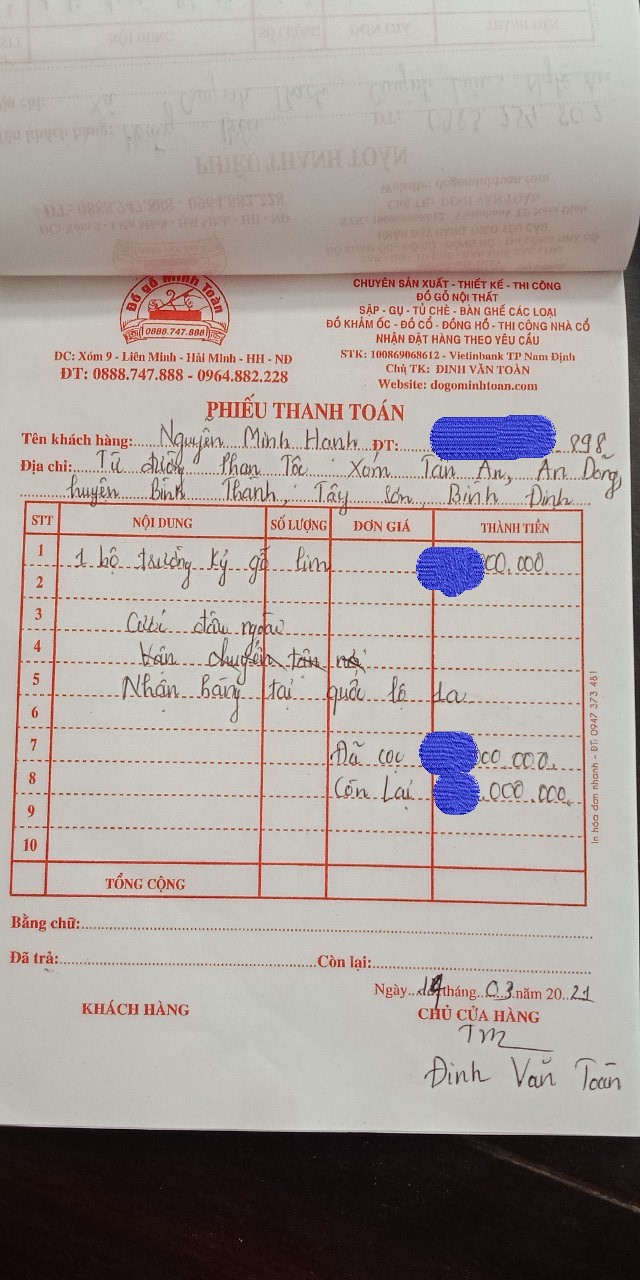 PHIẾU THANH TOÁN
Đồ gỗ Minh Toàn
0888.747.888
ĐC: Xóm 9 - Liên Minh - Hải Minh - HH - NĐ
ĐT: 0888.747.888 - 0964.882.228
CHUYÊN SẢN XUẤT - THIẾT KẾ - THI CÔNG
ĐỒ GỖ NỘI THẤT
SẬP - GỤ - TỦ CHÈ - BÀN GHẾ CÁC LOẠI
ĐỒ KHẢM ỐC - ĐỒ CỔ - ĐỒNG HỒ - THI CÔNG NHÀ CỔ
NHẬN ĐẶT HÀNG THEO YÊU CẦU
STK: 100869068612 - Vietinbank TP Nam Định
Chủ TK: ĐINH VĂN TOÀN
Website: dogominhtoan.com
PHIẾU THANH TOÁN
Tên khách hàng: Nguyễn Minh Hanh ĐT: 898
Địa chỉ: Từ đường Phan Tộc Xóm Tân An, An Dõng,
huyện Bình Thanh, Tây Sơn, Bình Định
STT NỘI DUNG SỐ LƯỢNG ĐƠN GIÁ THÀNH TIỀN
1 1 bộ trường kỷ gỗ lim 00.000.
2
3 Cưới đâu ngâu
4 Vận chuyển tân nơi
5 Nhận hàng tại quốc lộ 1a
6
7 Đã cọc 00.000.
8 Còn Lại .000.000.
9
10
TỔNG CỘNG
Bằng chữ:
Đã trả: Còn lại:
Ngày 14 tháng 03 năm 2021
KHÁCH HÀNG CHỦ CỬA HÀNG
TM
Đinh Văn Toàn
In hóa đơn nhanh - ĐT: 0947 373 481